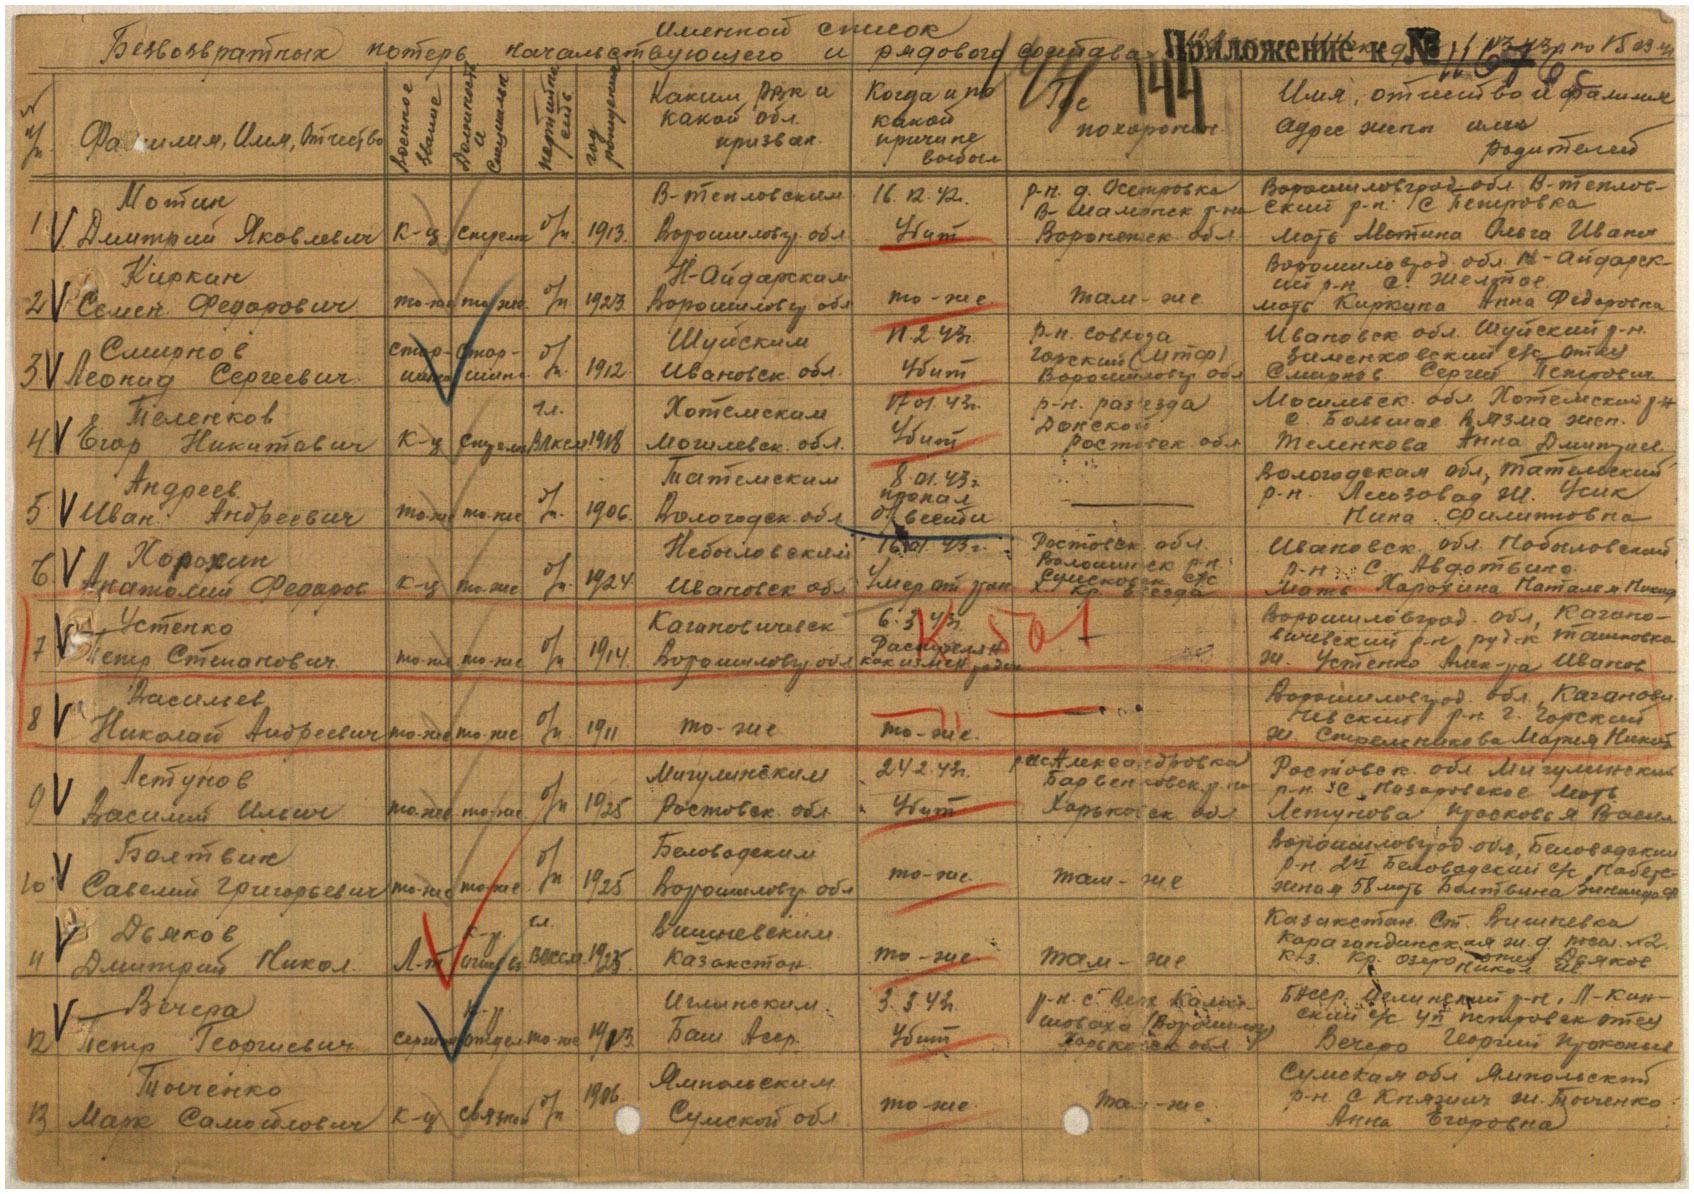 Именной список
Безвозвратных потерь начальствующего и рядового состава
Приложение к №
144
№ п/п
Фамилия, Имя, Отчество
Военное звание
Должность и специальн
партийность
год рождения
Каким рвк и какой обл. призван
Когда и по какой причине выбыл
Где похоронен
Имя, отчество и фамилия адрес жены или родителей
1 Мотин Дмитрий Яковлевич
к-ц
стрелк
б/п.
1913.
В-тепловским Ворошиловгр. обл
16.12.42г. Убит
р-н. д. Осетровка В-Мамонск р-на Воронежск обл
Ворошиловград. обл В-тепловский р-н. С Петровка мать Мотина Ольга Иван
2 Киркин Семен Федорович
то-же
то-же
б/п
1923
Н-Айдарским Ворошиловгр обл
то-же
там-же
Ворошиловград. обл Н-Айдарский р-н с. Желтое мать Киркина Анна Федоровна
3 Смирнов Леонид Сергеевич
старшина
старшина
б/п.
1912
Шуйским Ивановск. обл.
11.2.43г. Убит
р-н. совхоза Горский (МТФ) Ворошиловгр обл
Ивановск обл. Шуйский р-н. Зименковский с/с отец Смирнов Сергей Петрович
4 Теленков Егор Никитович
к-ц
стрелк
чл. ВЛКСМ
1918
Хотемским Могилевск. обл.
17.01.43г. Убит
р-н. разъезда Донской Ростовск обл
Могилевск. обл Хотемский р-н с. Большая Вязма жен. Теленкова Анна Дмитриев.
5 Андреев Иван Андреевич
то-же
то-же
б/п.
1906.
Тотемским Вологодск. обл
8.01.43г. пропал б/вести
Вологодская обл, Тотемский р-н. Лесозавод ж. Усик Нина Филипповна
6 Хорохин Анатолий Федоров
к-ц
то-же
б/п.
1924
Небыловским Ивановск обл
16.01.43г. Умер от ран
Ростовск. обл. Волошинск р-н. х. Кр. Звезда
Ивановск. обл. Небыловский р-н С. Авдотьино. Мать Харохина Наталья Никид
7 Устенко Петр Степанович.
то-же
то-же
б/п
1914.
Кагановическ Ворошиловгр обл
6.3.43г. Расстрелян как измен родин
К 501
Ворошиловград. обл, Кагановический р-н руд-к Тошковка ж. Устенко Алек-ра Иванов
8 Васильев Николай Андреевич
то-же
то-же
б/п
1911
то-же
то-же.
Ворошиловград. обл, Кагановический р-н г. Горский ж. Стрельникова Мария Никит
9 Летунов Василий Ильич
то-же
то-же
б/п
1925
Мигулинским Ростовск. обл
24.2.43г. Убит
Александровка Барвенковск р-на Харьковск обл
Ростовск. обл Мигулинский р-н. ЗС. Назаровское мать Летунова Просковья Васил
10 Болтвин Савелий Григорьевич
то-же
то-же
б/п.
1925
Беловодским Ворошиловгр обл
то-же.
там-же
Ворошиловград обл, Беловодский р-н. 2й Беловодский с/с Набережная 58 мать Болтвина Зинаида Ф
11 Дьяков Дмитрий Никол.
Л-т
к-р
чл. ВЛКСМ
1923.
Вишневским Казакстан.
то-же
там-же
Казакстан. Ст. Вишневка Карагандинская ж. д. посел. №2. к-з. Кр. озеро отец Дьяков Никол
12 Вечера Петр Георгиевич
сержан
к-р отдел
то-же
1913.
Иглинским. Баш Асср.
3.3.43г. Убит
Харьковск обл
БАсср. Иглинский р-н. с/с Петровск отец Вечера Георгий Прокопье
13 Точенко Марк Самойлович
к-ц
связной
б/п
1906.
Ямпольским Сумской обл
то-же.
там-же.
Сумская обл Ямпольский р-н. С Княжич ж. Точенко Анна Егоровна